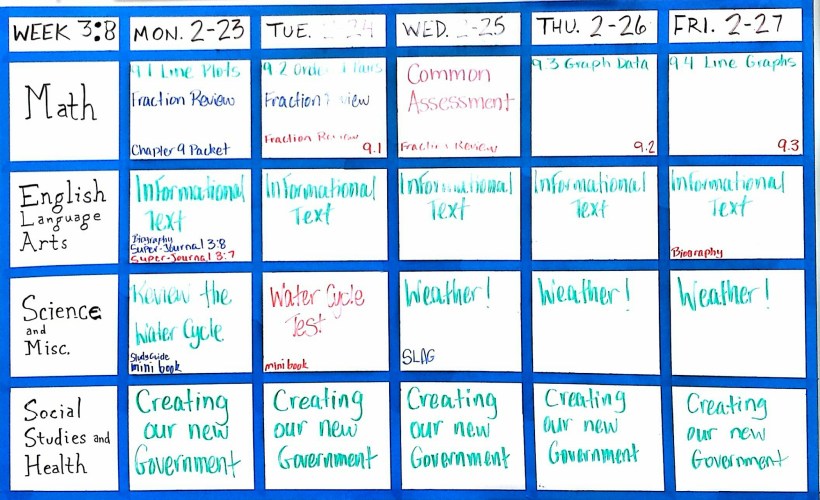 WEEK 3:8
MON. 2-23
TUE. 24
WED. -25
THU. 2-26
FRI. 2-27
Math
9 1 Line Plots
Fraction Review
Chapter 9 Packet
9 2
Fraction
Fraction
9.1
Common
Assessment
Review
9 3 Graph Data
9.2
9 4 Line Graphs
9.3
English
Language
Arts
Informational
Text
Biography
Super-Journal 3:8
Super-Journal 3:7
Informational
Text
Informational
Text
Informational
Text
Informational
Text
Biography
Science
and
Misc.
Review the
Water Cycle.
Study Guide
mini book
Water Cycle
Test
mini book
Weather!
SLAG
Weather!
Weather!
Social
Studies and
Health
Creating
our new
Government
Creating
our new
Government
Creating
our new
Government
Creating
our new
Government
Creating
our new
Government